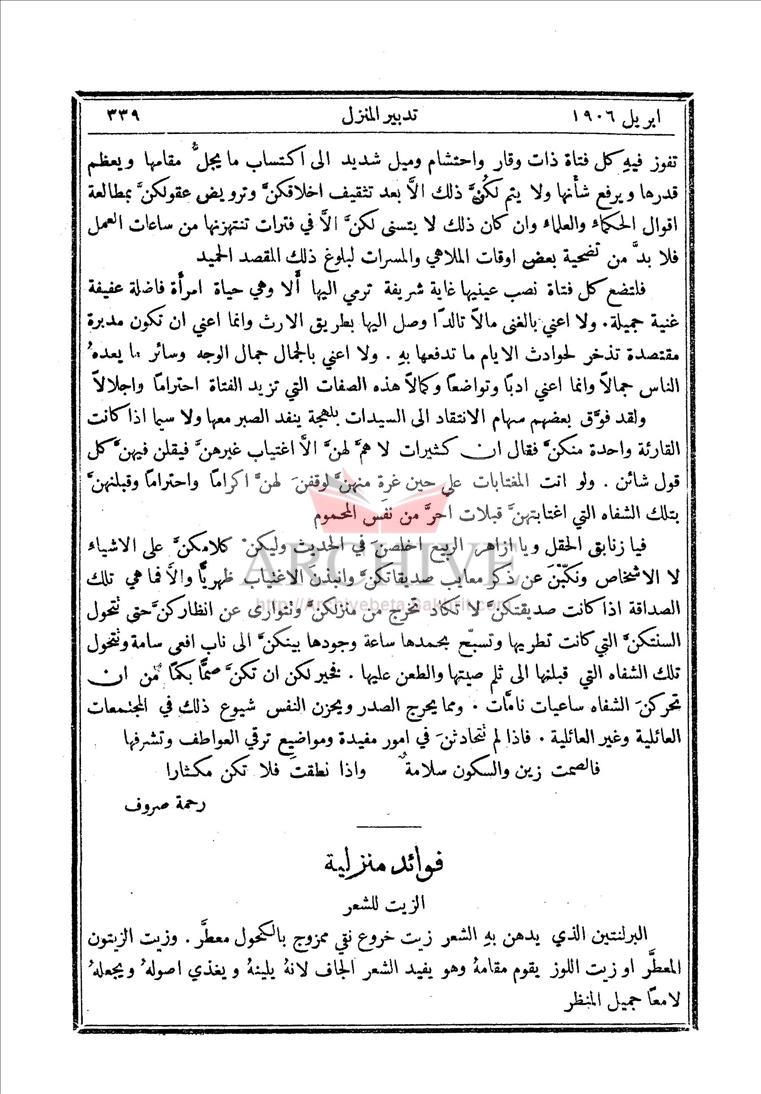 ابريل ١٩٠٦ تدبير المنزل ٣٣٩
تفوز فيهِ كل فتاة ذات وقار واحتشام وميل شديد الى اكتساب ما يجلُّ مقامها ويعظم
قدرها ويرفع شأنها ولا يتم لكنَّ ذلك الَّا بعد تثقيف اخلاقكنَّ وترويض عقولكنَّ بمطالعة
اقوال الحكماء والعلماء وان كان ذلك لا يتسنى لكنَّ الَّا في فترات تنتهزنها من ساعات العمل
فلا بدَّ من تضحية بعض اوقات الملاهي والمسرات لبلوغ ذلك المقصد الحميد
فلتضع كل فتاة نصب عينيها غاية شريفة ترمي اليها أَلا وهي حياة امرأة فاضلة عفيفة
غنية جميلة. ولا اعني بالغنى مالاً تالدًا وصل اليها بطريق الارث وانما اعني ان تكون مدبرة
مقتصدة تذخر لحوادث الايام ما تدفعها بهِ. ولا اعني بالجمال جمال الوجه وسائر ما يعدهُ
الناس جمالاً وانما اعني ادبًا وتواضعًا وكمالاً هذه الصفات التي تزيد الفتاة احترامًا واجلالاً
ولقد فوَّق بعضهم سهام الانتقاد الى السيدات بلهجة ينفد الصبر معها ولا سيما اذا كانت
القارئة واحدة منكنَّ فقال ان كثيرات لا همَّ لهنَّ الَّا اغتياب غيرهنَّ فيقلن فيهنَّ كل
قول شائن. ولو اتت المغتابات على حين غرة منهنَّ لوقفنَ لهنَّ اكرامًا واحترامًا وقبلنهنَّ
بتلك الشفاه التي اغتابتهنَّ قبلات احرَّ من نفَس المحموم
فيا زنابق الحقل ويا ازاهر الربيع اخلصنَ في الحديث وليكن كلامكنَّ على الاشياء
لا الاشخاص ونكّبنَ عن ذكر معايب صديقاتكنَّ وانبذن الاغتياب ظهريًّا والَّا فما هي تلك
الصداقة اذا كانت صديقتكنَّ لا تكاد تخرج من منزلكنَّ وتتوارى عن انظاركنَّ حتى تتحول
السنتكنَّ التي كانت تطريها وتسبّح بحمدها ساعة وجودها بينكنَّ الى ناب افعى سامة وتتحول
تلك الشفاه التي قبلنها الى ثلم صيتها والطعن عليها. فخير لكن ان تكنَّ صمًّا بكمًا من ان
تحركنَ الشفاه ساعيات نامَّات. ومما يحرج الصدر ويحزن النفس شيوع ذلك في المجتمعات
العائلية وغير العائلية. فاذا لم تتحادثنَ في امور مفيدة ومواضيع ترقي العواطف وتشرفها
فالصمت زين والسكون سلامةٌ واذا نطقتَ فلا تكن مكثارا
رحمة صروف
فوائد منزلية
الزيت للشعر
البرلنتين الذي يدهن بهِ الشعر زيت خروع نقي ممزوج بالكحول معطَّر. وزيت الزيتون
المعطَّر او زيت اللوز يقوم مقامهُ وهو يفيد الشعر الجاف لانهُ يلينهُ ويغذي اصولهُ ويجعلهُ
لامعًا جميل المنظر
ARCHIVE